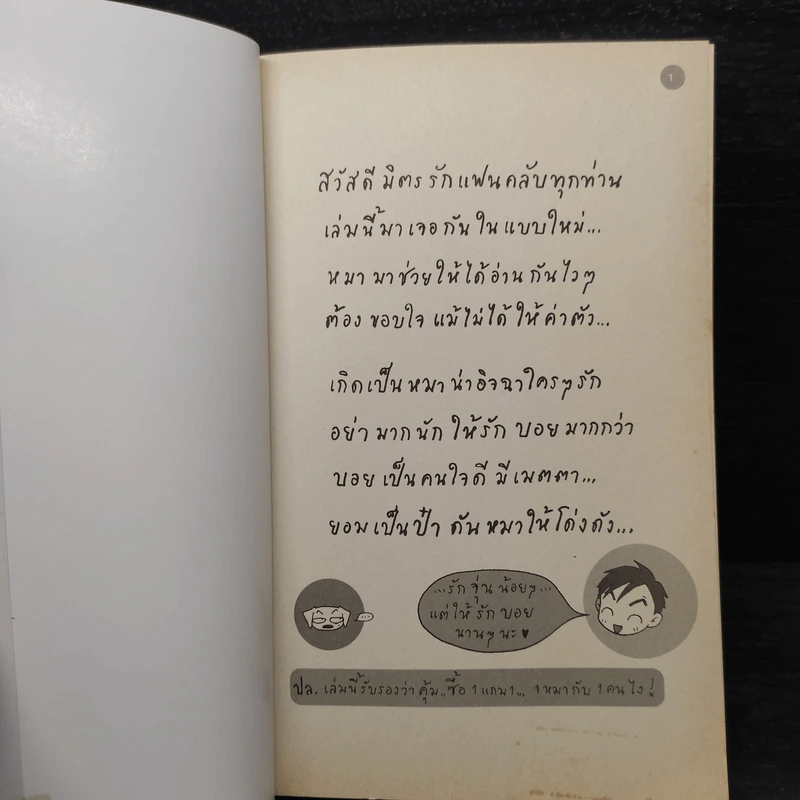 1
สวัสดี มิตรรักแฟนคลับทุกท่าน
เล่มนี้มาเจอกันในแบบใหม่...
หมามาช่วยให้ได้อ่านกันไวๆ
ต้องขอบใจ แม้ไม่ได้ให้ค่าตัว...
เกิดเป็นหมาน่าอิจฉาใครๆรัก
อย่ามากนัก ให้รักบอยมากกว่า
บอยเป็นคนใจดี มีเมตตา...
ยอมเป็นป๋า ดันหมาให้โด่งดัง...
...รักจุ่นน้อยๆ...
แต่ให้รักบอย
นานๆนะ♥
ปล. เล่มนี้รับรองว่าคุ้ม..ซื้อ 1 แถม 1... 1 หมากับ 1 คนไง!